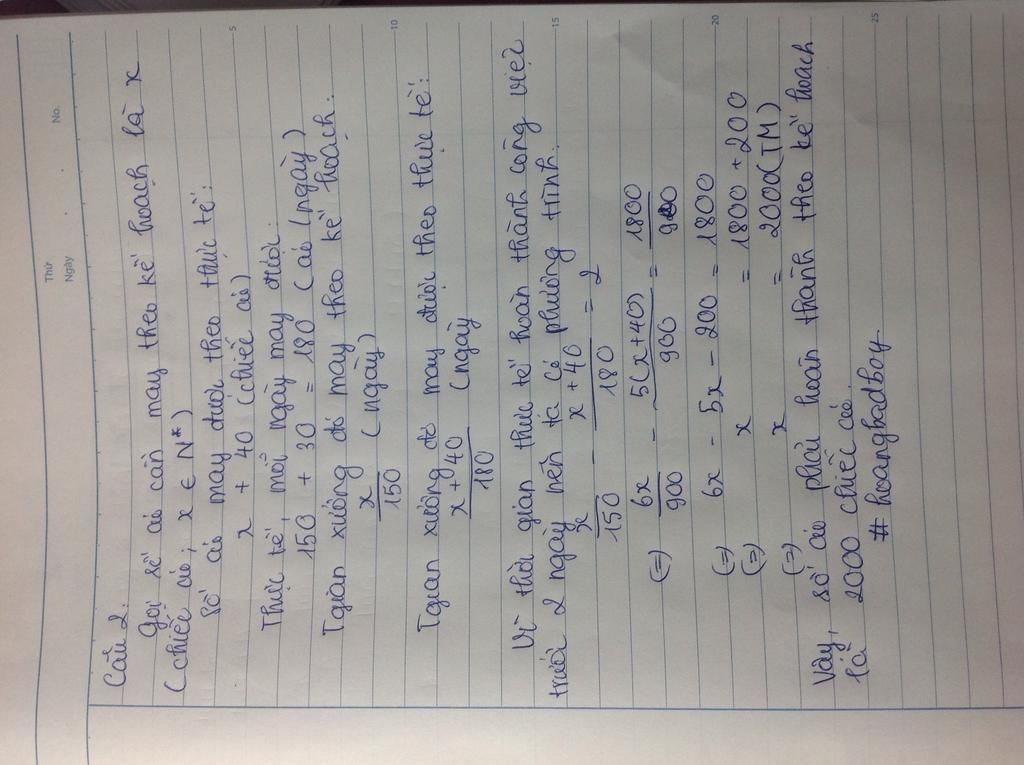 Thứ
Ngày
No.
Câu 2.
Gọi số áo cần may theo kế hoạch là x
(chiếc áo; x ∈ N*)
Số áo may được theo thực tế:
x + 40 (chiếc áo)
5
Thực tế, mỗi ngày may được:
150 + 30 = 180 (áo/ngày)
Tgian xưởng đó may theo kế hoạch:
x/150 (ngày)
10
Tgian xưởng đó may được theo thực tế:
x + 40/180 (ngày)
Vì thời gian thực tế hoàn thành công việc
15
trước 2 ngày nên ta có phương trình:
x/150 - x + 40/180 = 2
(=) 6x/900 - 5(x+40)/900 = 1800/900
20
(=) 6x - 5x - 200 = 1800
(=) x = 1800 + 200
(=) x = 2000 (TM)
Vậy, số áo phải hoàn thành theo kế hoạch
là 2000 chiếc áo.
25
# hoangbadboy